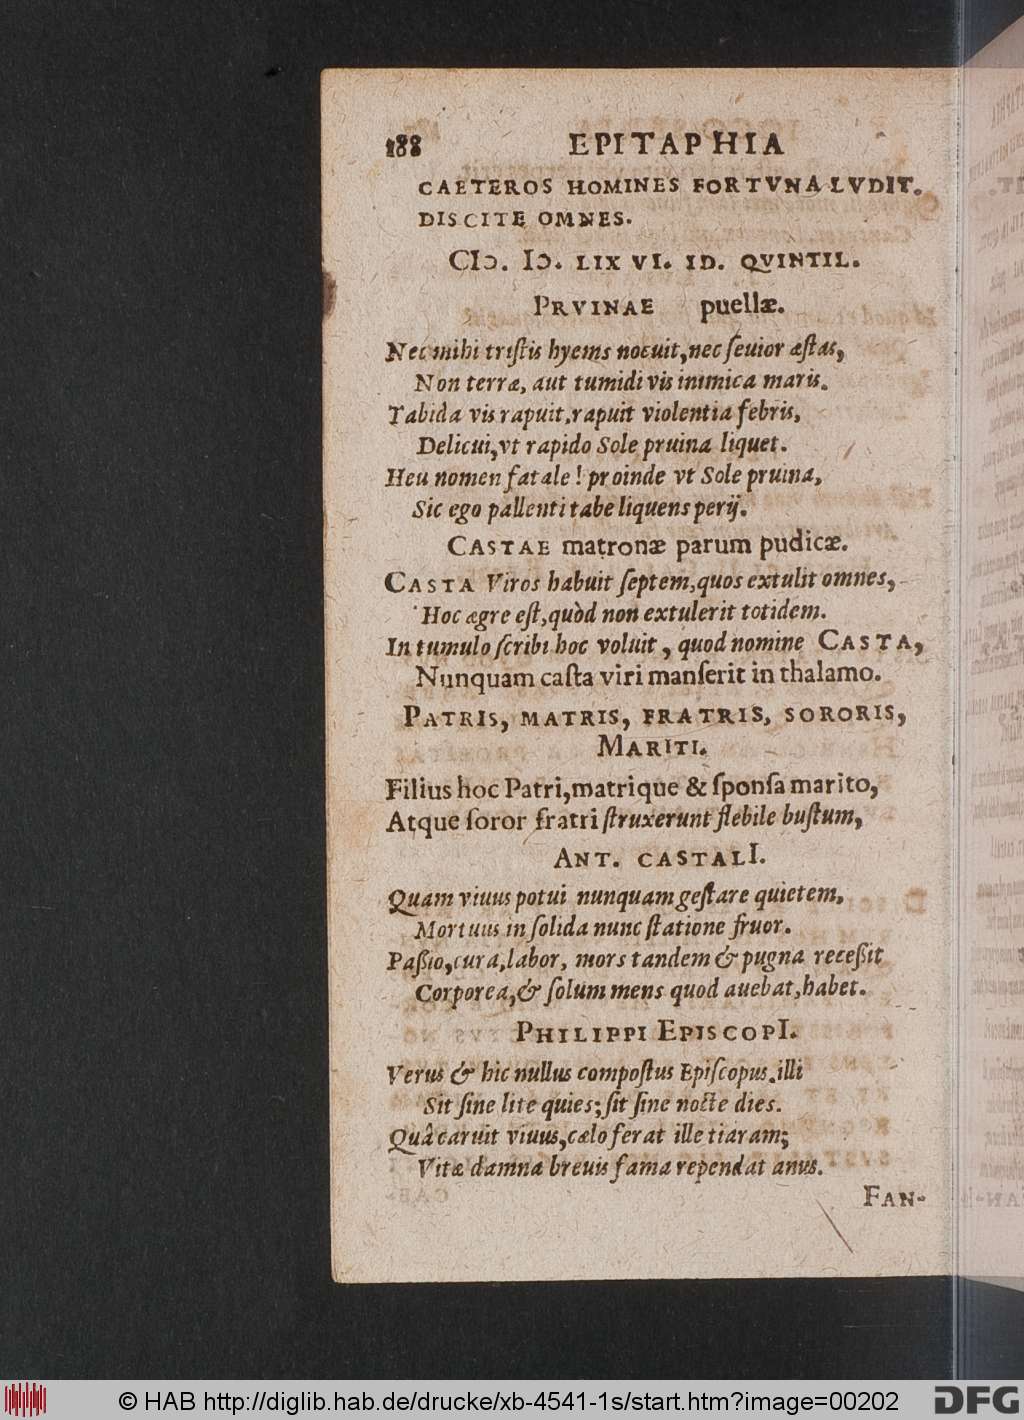 188 EPITAPHIA
CAETEROS HOMINES FORTVNA LVDIT.
DISCITE OMNES.
CIↃ. IↃ. LIX VI. ID. QVINTIL.
PRVINAE puellæ.
Nec mihi tristis hyems nocuit, nec seuior æstas,
Non terræ, aut tumidi vis inimica maris.
Tabida vis rapuit, rapuit violentia febris,
Delicui, vt rapido Sole pruina liquet.
Heu nomen fatale! proinde vt Sole pruina,
Sic ego pallenti tabe liquens perij.
CASTAE matronæ parum pudicæ.
CASTA Viros habuit septem, quos extulit omnes,
Hoc ægre est, quòd non extulerit totidem.
In tumulo scribi hoc voluit, quod nomine CASTA,
Nunquam casta viri manserit in thalamo.
PATRIS, MATRIS, FRATRIS, SORORIS,
MARITI.
Filius hoc Patri, matrique & sponsa marito,
Atque soror fratri struxerunt flebile bustum,
ANT. CASTALI.
Quam viuus potui nunquam gestare quietem,
Mortuus in solida nunc statione fruor.
Paßio, cura, labor, mors tandem & pugna receßit
Corporea, & solum mens quod auebat, habet.
PHILIPPI EPISCOPI.
Verus & hic nullus compostus Episcopus. illi
Sit sine lite quies; sit sine nocte dies.
Quâ caruit viuus, cælo ferat ille tiaram;
Vitæ damna breuis fama rependat anus.
FAN-
© HAB http://diglib.hab.de/drucke/xb-4541-1s/start.htm?image=00202
DFG